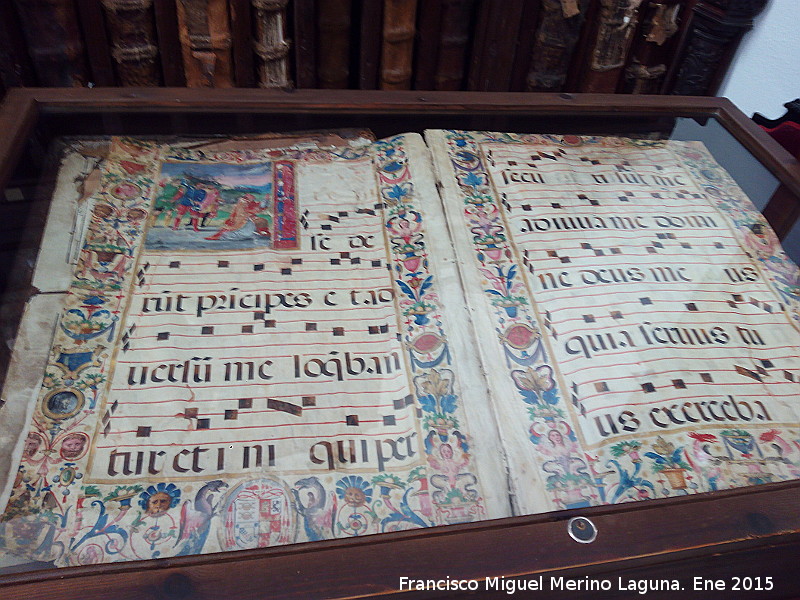 ſe de
rūt prīcipes e t ad
uerſū me loq̄ban
tur et i ni qui per
ſecu ti ſūt me
adiuua me domi
ne deus me us
quia ſeruus tu
us exerceba
Francisco Miguel Merino Laguna. Ene 2015